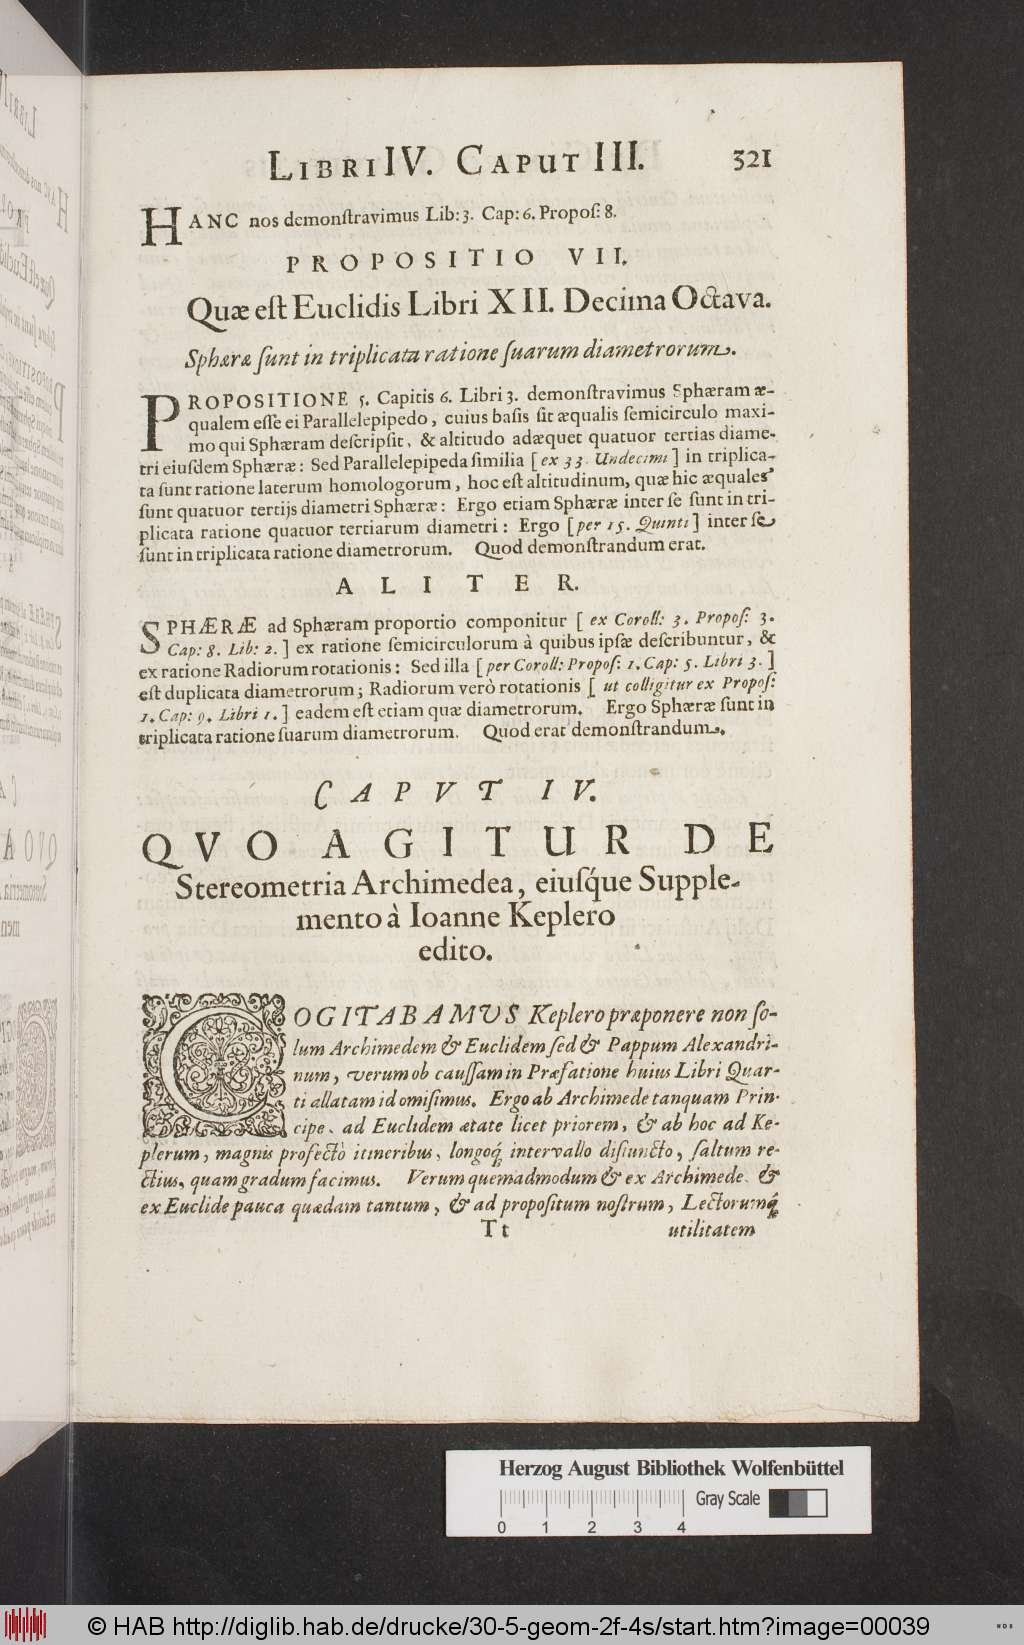 LIBRI IV. CAPUT III. 321
HANC nos demonſtravimus Lib: 3. Cap: 6. Propoſ: 8.
PROPOSITIO VII.
Quæ eſt Euclidis Libri XII. Decima Octava.
Sphæræ ſunt in triplicata ratione ſuarum diametrorum.
PROPOSITIONE 5. Capitis 6. Libri 3. demonſtravimus Sphæram æ-
qualem eſſe ei Parallelepipedo, cuius baſis ſit æqualis ſemicirculo maxi-
mo qui Sphæram deſcripſit, & altitudo adæquet quatuor tertias diame-
tri eiuſdem Sphæræ: Sed Parallelepipeda ſimilia [ex 33. Undecimi] in triplica-
ta ſunt ratione laterum homologorum, hoc eſt altitudinum, quæ hic æquales
ſunt quatuor tertijs diametri Sphæræ: Ergo etiam Sphæræ inter ſe ſunt in tri-
plicata ratione quatuor tertiarum diametri: Ergo [per 15. Quinti] inter ſe
ſunt in triplicata ratione diametrorum. Quod demonſtrandum erat.
ALITER.
SPHÆRÆ ad Sphæram proportio componitur [ex Coroll: 3. Propoſ: 3.
Cap: 8. Lib: 2.] ex ratione ſemicirculorum à quibus ipſæ deſcribuntur, &
ex ratione Radiorum rotationis: Sed illa [per Coroll: Propoſ: 1. Cap: 5. Libri 3.]
eſt duplicata diametrorum; Radiorum verò rotationis [ut colligitur ex Propoſ:
1. Cap: 9. Libri 1.] eadem eſt etiam quæ diametrorum. Ergo Sphæræ ſunt in
triplicata ratione ſuarum diametrorum. Quod erat demonſtrandum.
CAPVT IV.
QVO AGITUR DE
Stereometria Archimedea, eiuſq́ue Supple-
mento à Ioanne Keplero
edito.
COGITABAMUS Keplero præponere non ſo-
lum Archimedem & Euclidem ſed & Pappum Alexandri-
num, verum ob cauſſam in Præfatione huius Libri Quar-
ti allatam id omiſimus. Ergo ab Archimede tanquam Prin-
cipe, ad Euclidem ætate licet priorem, & ab hoc ad Ke-
plerum, magnis profectò itineribus, longoq́; intervallo diſiuncto, ſaltum re-
ctius, quam gradum facimus. Verum quemadmodum & ex Archimede, &
ex Euclide pauca quædam tantum, & ad propoſitum noſtrum, Lectorumq́;
Tt utilitatem
Herzog August Bibliothek Wolfenbüttel
Gray Scale
0 1 2 3 4
© HAB http://diglib.hab.de/drucke/30-5-geom-2f-4s/start.htm?image=00039